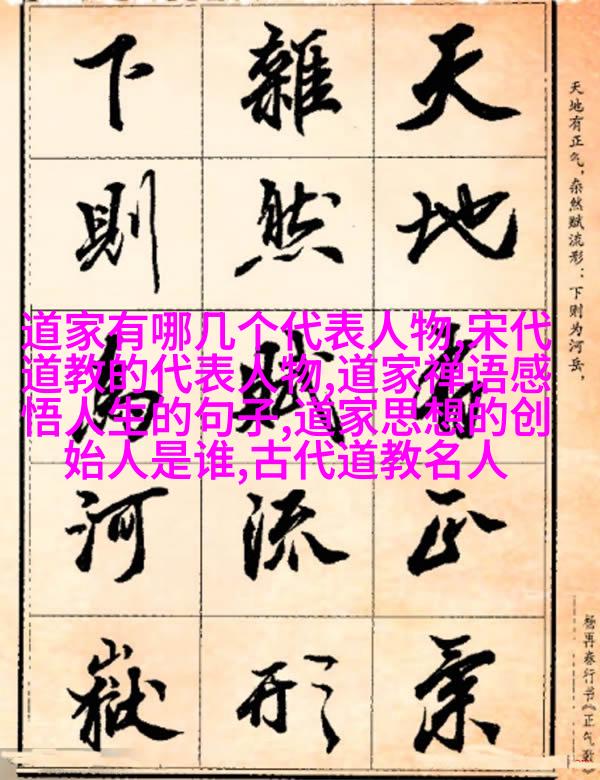 天地有正氣
雜然賦流形
下則為河嶽
天地有正气，杂然赋流形：下则为河岳，
杨再春行书《正气歌》
道家有哪几个代表人物,宋代
道教的代表人物,道家禅语感
悟人生的句子,道家思想的创
始人是谁,古代道教名人